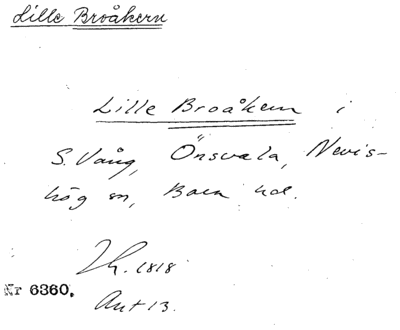 Lille Broåkern
Lille Broåkern i
S. Vång, Önsvala, Nevis-
hög sn, Bara hd.
1818
Nr 6360.
Akt 13.